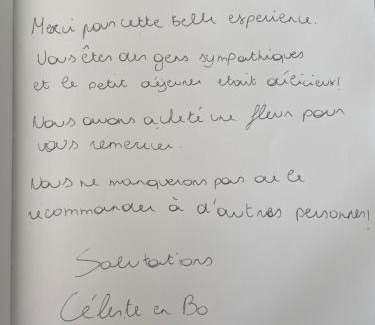 Merci pour cette belle experience.
Vous êtes des gens sympathiques
et le petit déjeuner était délicieux!
Nous avons acheté une fleur pour
vous remercier.
Nous ne manquerons pas de le
recommander à d'autres personnes!
Salutations
Céleste en Bo